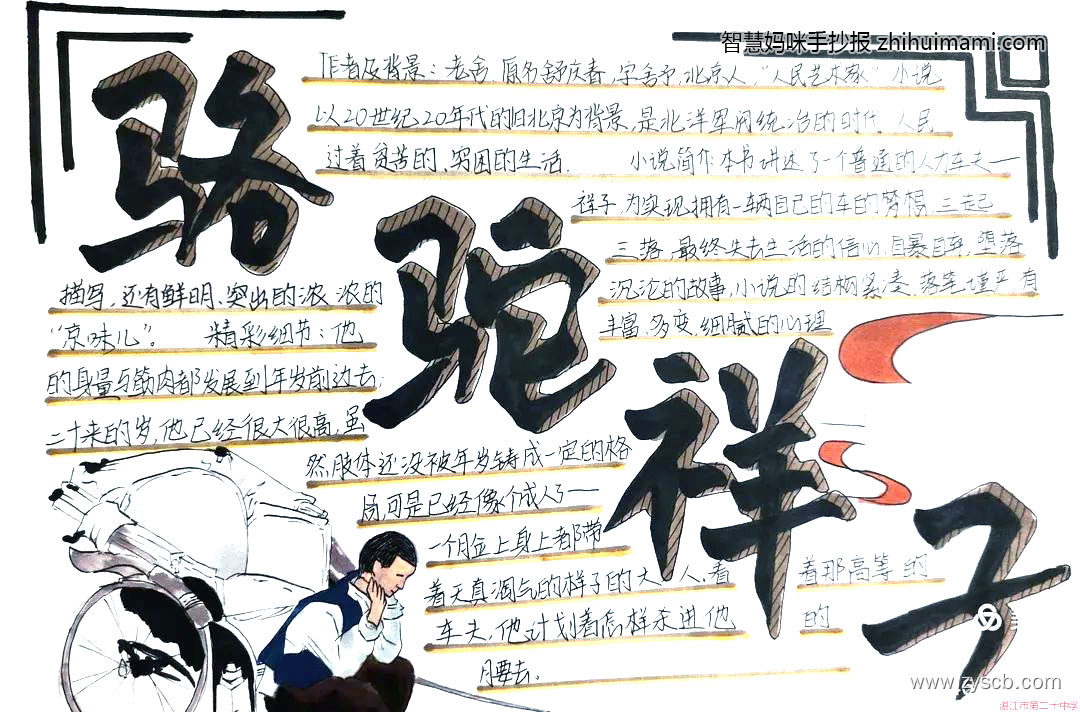 智慧妈咪手抄报 zhihuimami.com
骆驼祥子
作者及背景：老舍,原名舒庆春,字舍予,北京人,“人民艺术家”小说
以20世纪20年代的旧北京为背景,是北洋军阀统治的时代,人民
过着贫苦的、穷困的生活. 小说简介:本书讲述了一个普通的人力车夫一
祥子,为实现拥有一辆自己的车的梦想,三起
三落,最终失去生活的信心,自暴自弃,堕落
沉沦的故事,小说的结构紧凑,落笔谨严,有
丰富,多变,细腻的心理
描写,还有鲜明、突出的浓浓的
“京味儿”。 精彩细节：他
的身量与筋肉都发展到年岁前边去;
二十来的岁,他已经很大很高,虽
然肢体还没被年岁铸成一定的格
局可是已经像个成人了一
一个脸上身上都带
着天真淘气的样子的大人,看着那高等的
车夫,他计划着怎样杀进他的
腰去。
www.zyscb.com
湛江市第二十中学